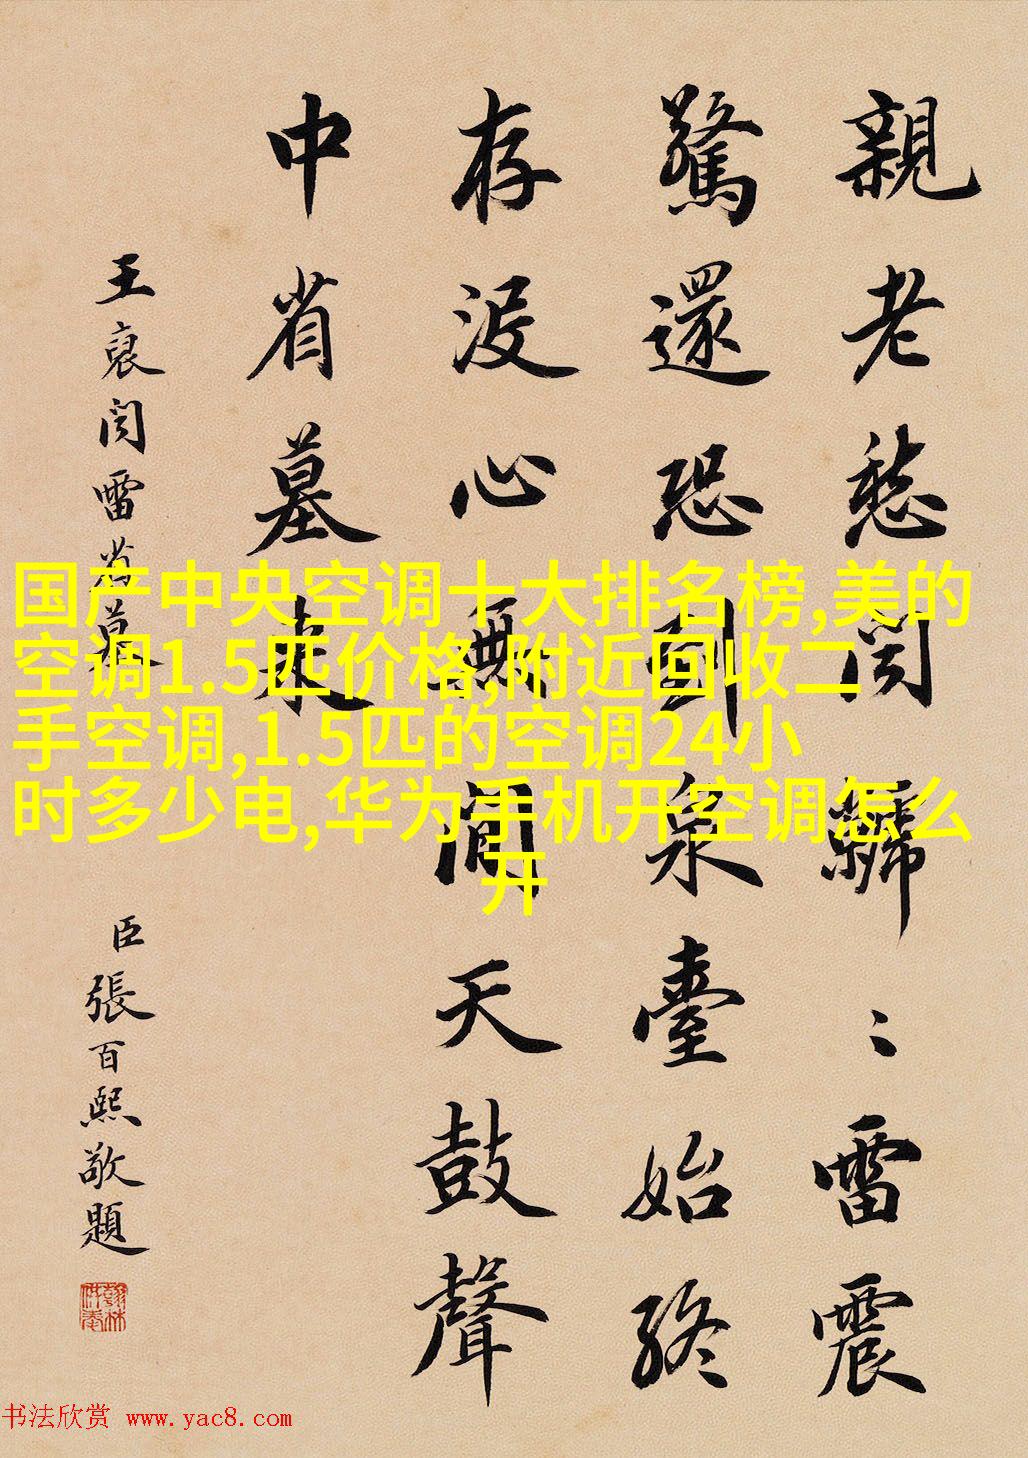 親老愁聞〻雷震
驚還恐到泉臺始終
存沒心無間天鼓聲
中省墓來
王裒聞雷省墓
臣張百熙敬題
翰林供奉
国产中央空调十大排名榜,美的
空调1.5匹价格,附近回收二
手空调,1.5匹的空调24小
时多少电,华为手机开空调怎么
开
书法欣赏 www.yac8.com